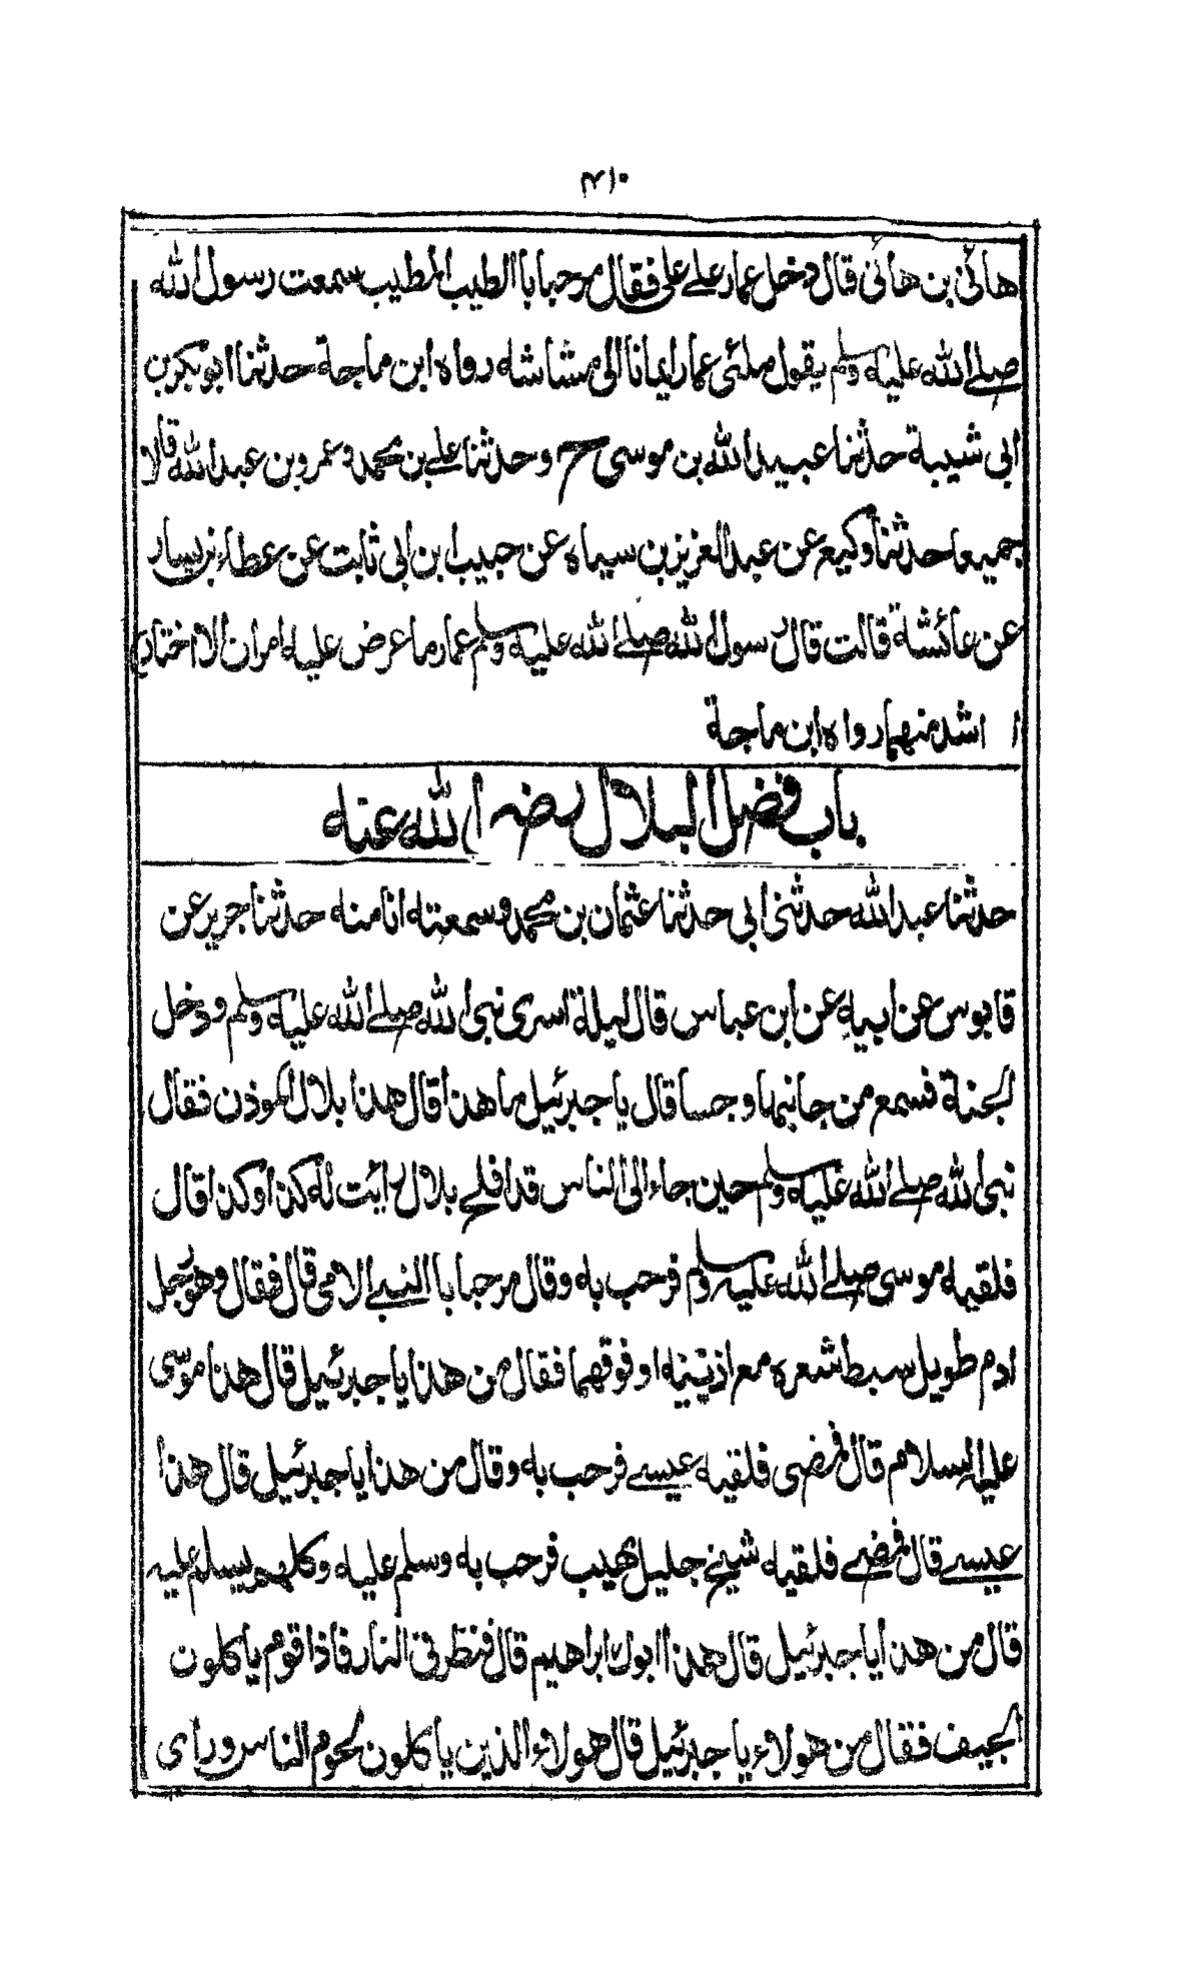 ٣١٠
هانئ بن هانئ قال دخل عمار علي علي فقال مرحبا باالطيب المطيب سمعت رسول الله
صلے الله عليه وسلم يقول ملئ عمار ايمانا الى مشاشه رواه ابن ماجة حدثنا ابو بكر بن
ابى شيبة حدثنا عبيد الله بن موسى ح وحدثنا علے بن محمد وعمرو بن عبدالله قالا
جميعا حدثنا وكيع عن عبد العزيز بن سياه عن حبيب ابن ابى ثابت عن عطاء بن يسار
عن عائشة قالت قال رسول الله صلے الله عليه وسلم عمار ما عرض عليه امران الا اختار
ا اشد منهما رواه ابن ماجة
باب فضل البلال رضہ الله عنه
حدثنا عبدالله حدثنى ابى حدثنا عثمان بن محمد وسمعته انا منه حدثنا جرير عن
قابوس عن ابيه عن ابن عباس قال ليلة اسرى نبى الله صلے الله عليه وسلم ودخل
الجنة فسمع من جانبها وجسا قال يا جبرئيل ما هذا قال هذا بلال الموذن فقال
نبى الله صلے الله عليه وسلم حين جاء الى الناس قد افلح بلال رايت له كذا وكذا قال
فلقيه موسى صلے الله عليه وسلم فرحب به وقال مرحبا باالنبے الامى قال فقال وهو رجل
ادم طويل سبط شعره مع اذنيه او فوقهما فقال من هذا يا جبرئيل قال هذا موسى
عليه السلام قال فمضى فلقيه عيسے فرحب به وقال من هذا يا جبرئيل قال هذا
عيسے قال فمضے فلقيه شيخ جليل مهيب فرحب به وسلم عليه وكلهم يسلم عليه
قال من هذا يا جبرئيل قال هذا ابوك ابراهيم قال فنظر فى النار فاذا قوم ياكلون
الجيف فقال من هولاء يا جبرئيل قال هولاء الذين ياكلون لحوم الناس وراى